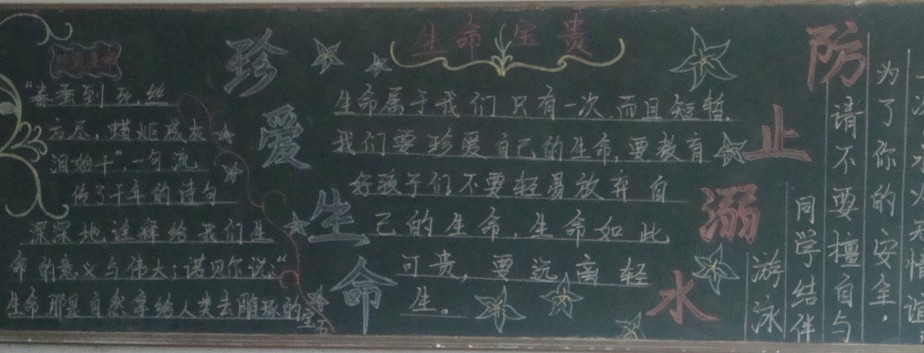 珍爱生命
防止溺水
生命宝贵
"春蚕到死丝
方尽，蜡炬成灰
泪始干"，一句流
传了千年的诗句
深深地诠释给我们生
命的意义与伟大；诺贝尔说："
生命那是自然拿给人类去雕琢的宝石
生命属于我们只有一次，而且短暂，
我们要珍爱自己的生命，要教育
好孩子们不要轻易放弃自
己的生命，生命如此
可贵，要远离轻
生。
为了你的安全，
请不要擅自与
同学结伴
游泳